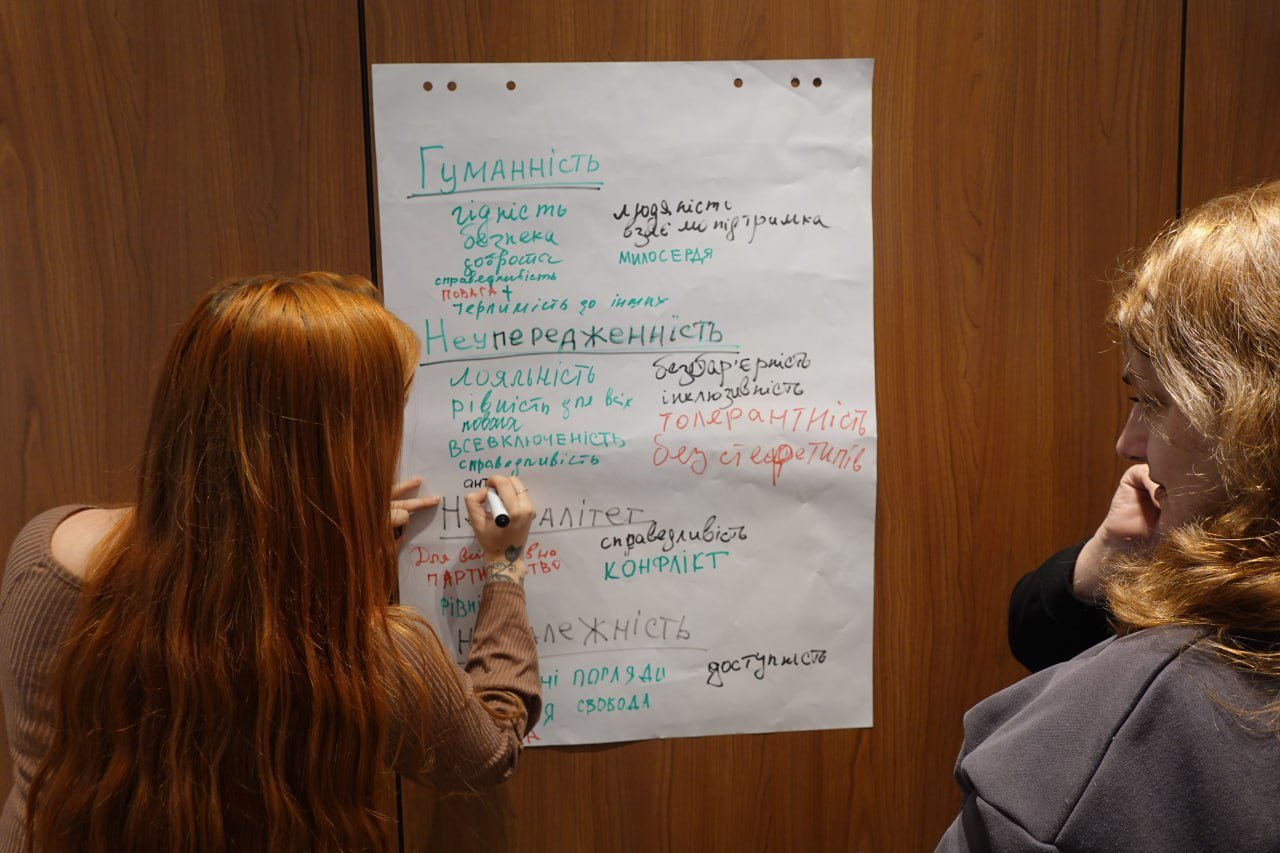 Гуманність
гідність
безпека
доброта
справедливість
ПОВАГА +
терпимість до інших
людяність
взаємопідтримка
МИЛОСЕРДЯ
Неупередженність
лояльність
рівність для всіх
повага
ВСЕВКЛЮЧЕНІСТЬ
справедливість
безбар'єрність
інклюзивність
толерантність
без стеретипів
справедливість
КОНФЛІКТ
погляди
СВОБОДА
доступність